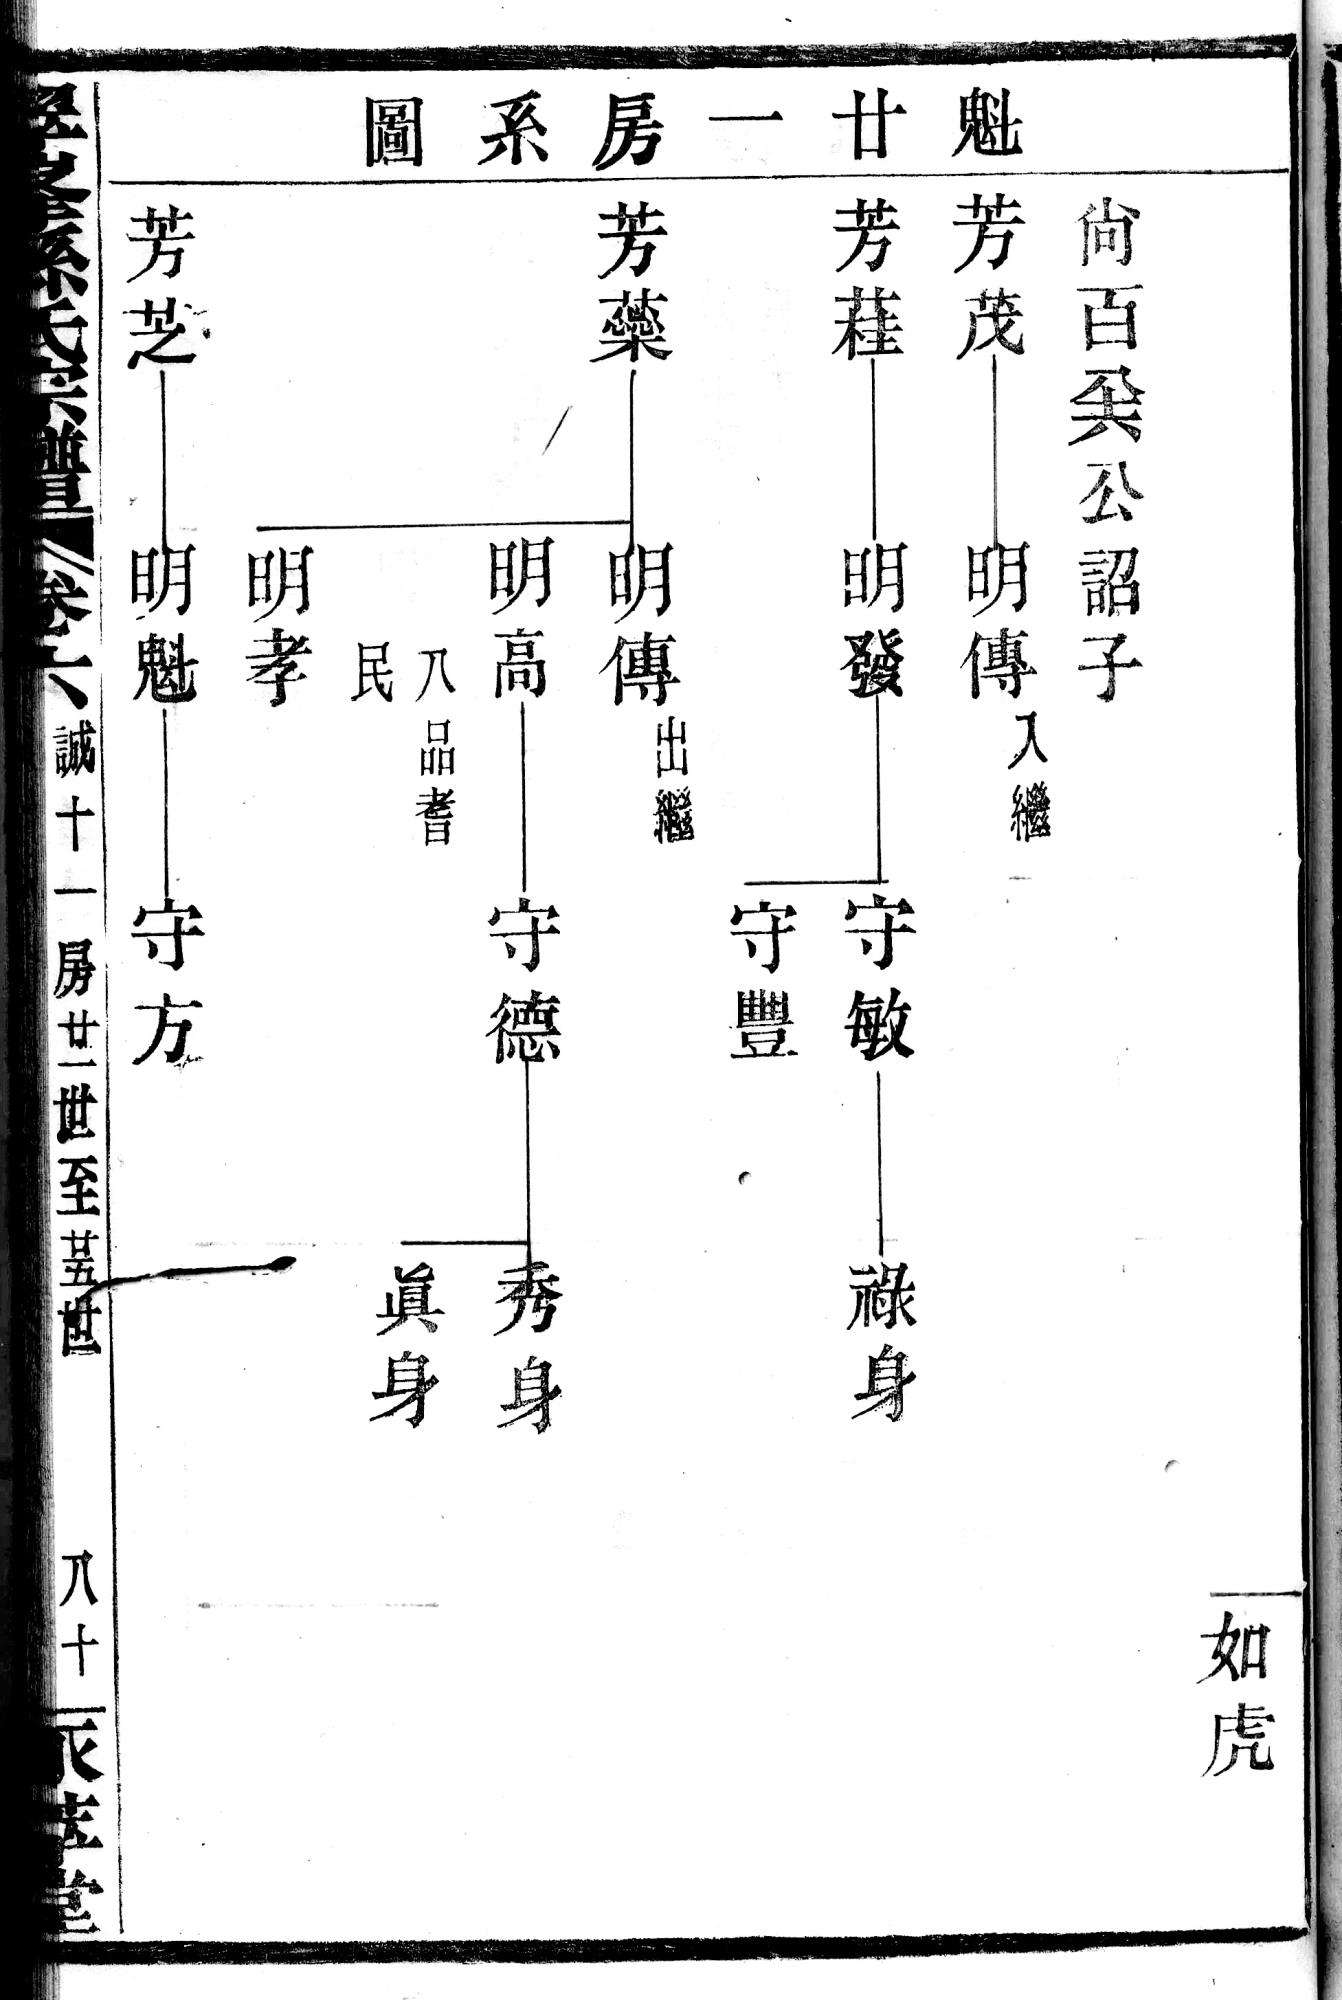 魁廿一房系圖
如虎
尙百
公詔子
芳茂
明傳
入繼
芳蓕
明發
守敏
祿身
守豐
芳蘂
明傳
出繼
明高
八品耆民
守德
秀身
眞身
明孝
芳芝
明魁
守方
孫氏宗譜
卷六
誠十一房廿一世至廿五世
八十
堂